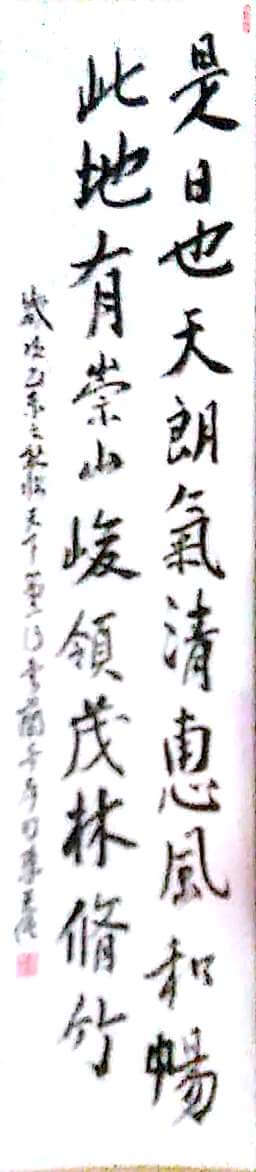 是日也天朗氣清惠風和暢
此地有崇山峻領茂林脩竹
歲次乙未之秋臨天下第一行書蘭亭序句